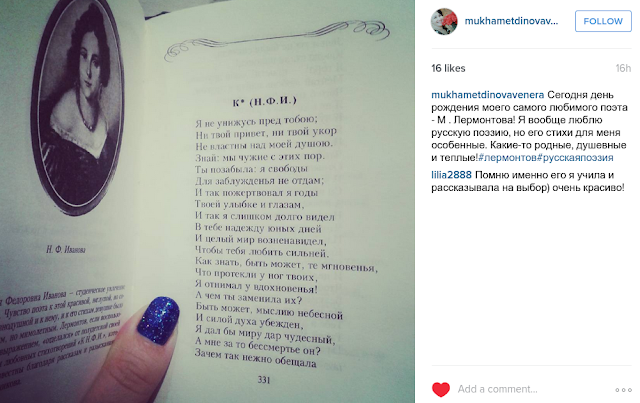 К* (Н.Ф.И.)
Я не унижусь пред тобою;
Ни твой привет, ни твой укор
Не властны над моей душою.
Знай: мы чужие с этих пор.
Ты позабыла: я свободы
Для заблужденья не отдам;
И так пожертвовал я годы
Твоей улыбке и глазам,
И так я слишком долго видел
В тебе надежду юных дней
И целый мир возненавидел,
Чтобы тебя любить сильней.
Как знать, быть может, те мгновенья,
Что протекли у ног твоих,
Я отнимал у вдохновенья!
А чем ты заменила их?
Быть может, мыслию небесной
И силой духа убежден,
Я дал бы миру дар чудесный,
А мне за то бессмертье он?
Зачем так нежно обещала
331
Н. Ф. Иванова
Федоровна Иванова – студенческое увлечение
Чувство поэта к этой красивой,
mukhametdinovav...
FOLLOW
16 likes
16h
mukhametdinovavenera Сегодня день
рождения моего самого любимого поэта
- М . Лермонтова! Я вообще люблю
русскую поэзию, но его стихи для меня
особенные. Какие-то родные, душевные
и теплые!#лермонтов#русскаяпоэзия
lilia2888 Помню именно его я учила и
рассказывала на выбор) очень красиво!
Add a comment...